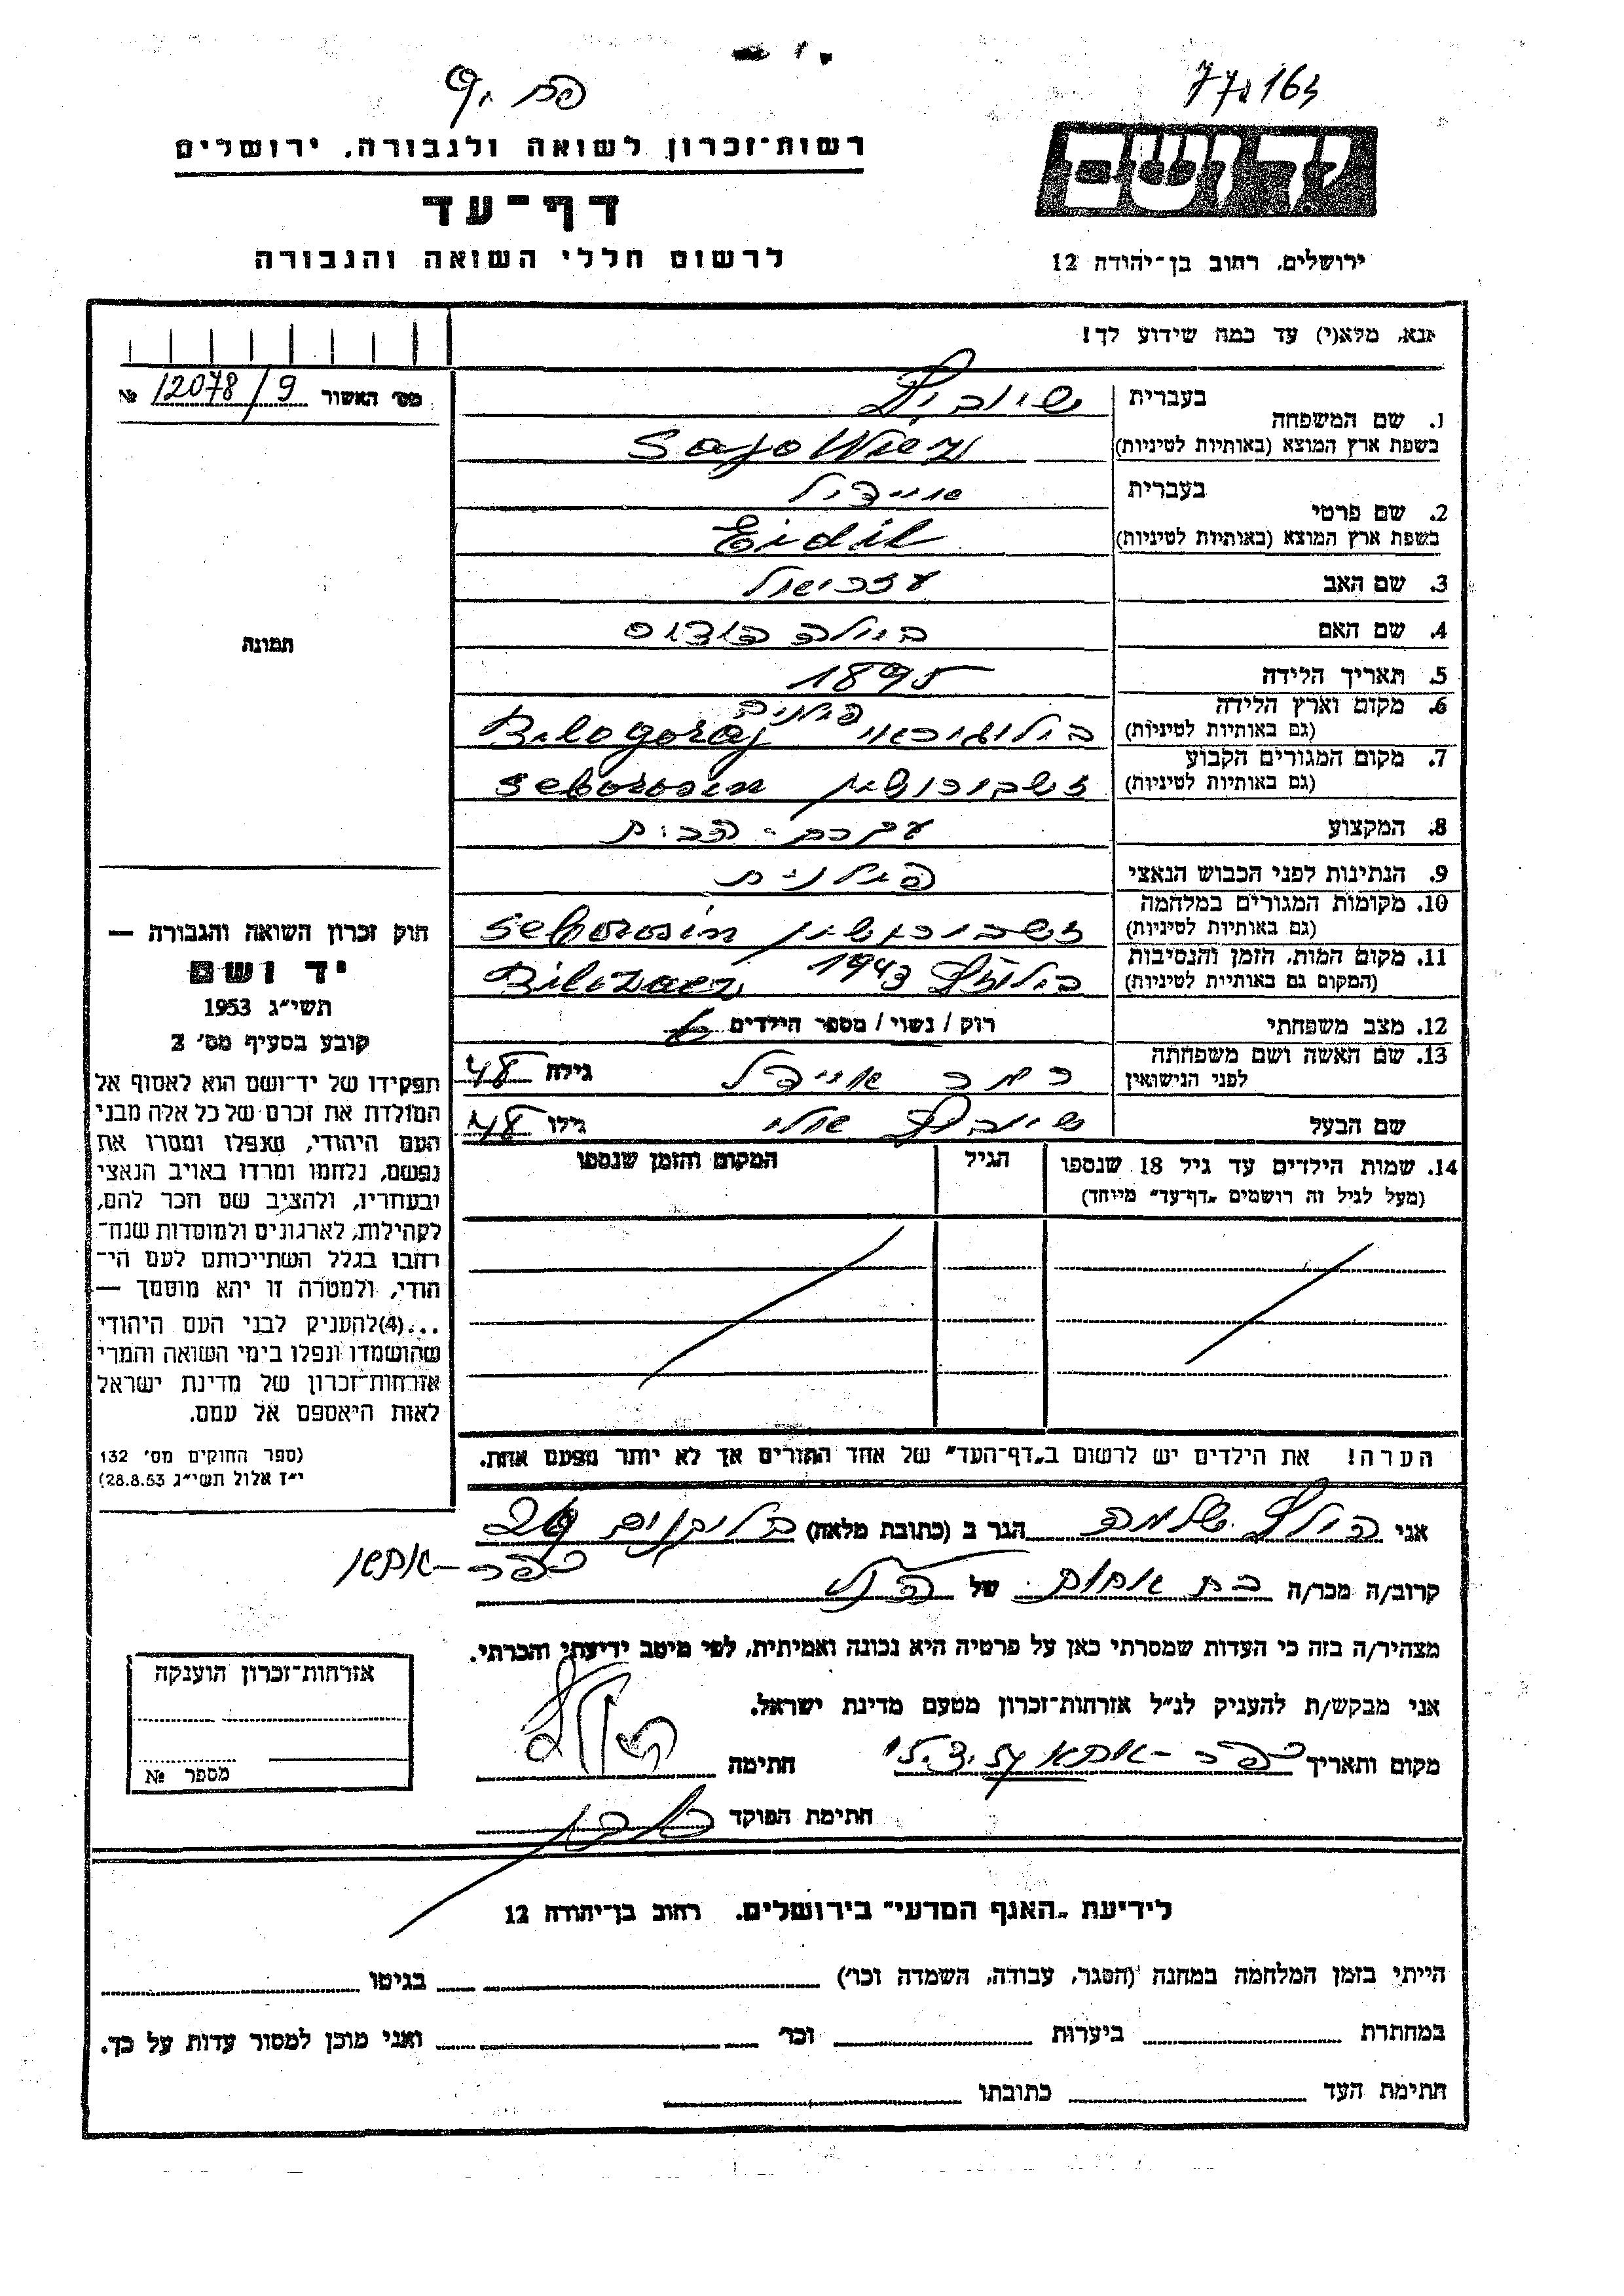 רשות־זכרון לשואה ולגבורה, ירושלים
דף־עד
לרשום חללי השואה והגבורה
77,163
יד ושם
ירושלים, רחוב בן־יהודה 12
אנא, מלא(י) עד כמה שידוע לך!
מס' האשור 12078/9 №
1. שם המשפחה
בעברית
בשפת ארץ המוצא (באותיות לטיניות) Sajowicz
2. שם פרטי
בעברית איידיל
בשפת ארץ המוצא (באותיות לטיניות) Eidil
3. שם האב עזריאל
4. שם האם ביילה
5. תאריך הלידה 1895
6. מקום וארץ הלידה (גם באותיות לטיניות) בילוגוראי פולנים Bilogoraj
7. מקום המגורים הקבוע (גם באותיות לטיניות) Seborosin
8. המקצוע עקרת-הבית
9. הנתינות לפני הכבוש הנאצי פולנית
10. מקומות המגורים במלחמה (גם באותיות לטיניות) Seborosin
11. מקום המות, הזמן והנסיבות (המקום גם באותיות לטיניות) 1943
12. מצב משפחתי רוק / נשוי / מספר הילדים
13. שם האשה ושם משפחתה לפני הנישואין איידל גילה 48
שם הבעל גילו 48
14. שמות הילדים עד גיל 18 שנספו
(מעל לגיל זה רושמים „דף־עד” מיוחד)
הגיל
המקום והזמן שנספו
הערה! את הילדים יש לרשום ב„דף־העד” של אחד ההורים אך לא יותר מפעם אחת.
תמונה
חוק זכרון השואה והגבורה —
יד ושם
תשי״ג 1953
קובע בסעיף מס' 2
תפקידו של יד־ושם הוא לאסוף אל
המולדת את זכרם של כל אלה מבני
העם היהודי, שנפלו ומסרו את
נפשם, נלחמו ומרדו באויב הנאצי
ובעוזריו, ולהציב שם וזכר להם,
לקהילות, לארגונים ולמוסדות שנח־
רבו בגלל השתייכותם לעם הי־
הודי, ולמטרה זו יהא מוסמך —
...(4)להעניק לבני העם היהודי
שהושמדו ונפלו בימי השואה והמרי
אזרחות־זכרון של מדינת ישראל
לאות היאספם אל עמם.
(ספר החוקים מס' 132
י״ז אלול תשי״ג 28.8.53)
אני הולץ שלמה הגר ב (כתובת מלאה)
קרוב/ה מכר/ה בת אחות של
מצהיר/ה בזה כי העדות שמסרתי כאן על פרטיה היא נכונה ואמיתית, לפי מיטב ידיעתי והכרתי.
אני מבקש/ת להעניק לנ״ל אזרחות־זכרון מטעם מדינת ישראל.
מקום ותאריך כפר-אתא חתימה
חתימת הפוקד
אזרחות־זכרון הוענקה
מספר №
לידיעת „האגף המדעי” בירושלים, רחוב בן־יהודה 12
הייתי בזמן המלחמה במחנה (הסגר, עבודה, השמדה וכו') בגיטו
במחתרת ביערות וכו' ואני מוכן למסור עדות על כך.
חתימת העד כתובתו